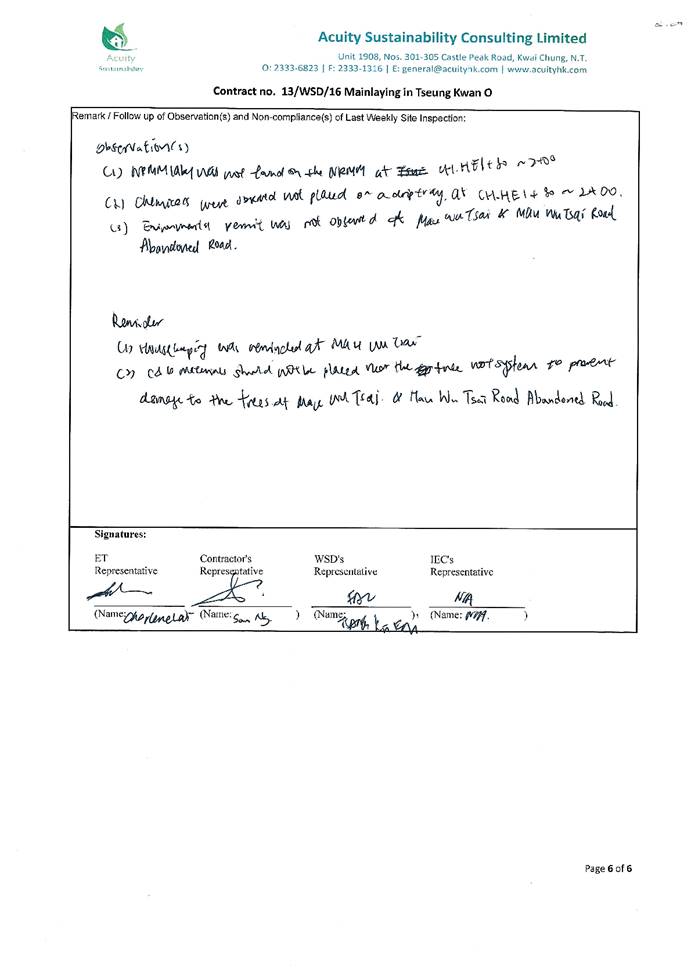 Acuity Sustainability Consulting Limited
Acuity
Sustainability
Unit 1908, Nos. 301-305 Castle Peak Road, Kwai Chung, N.T.
O: 2333-6823 | F: 2333-1316 | E: general@acuityhk.com | www.acuityhk.com
Contract no. 13/WSD/16 Mainlaying in Tseung Kwan O
Remark / Follow up of Observation(s) and Non-compliance(s) of Last Weekly Site Inspection:
Observation(s)
(1) NRMM label was not found on the NRMM at CH.HE1+80 ~ 2+00
(2) Chemicals were observed not placed on a drip tray at CH.HE1+80 ~ 2+00.
(3) Environmental permit was not observed at Mau Wu Tsai & Mau Wu Tsai Road
Abandoned Road.
Reminder
(1) Housekeeping was reminded at Mau Wu Tsai
(2) C&D materials should not be placed near the tree root system to prevent
damage to the trees at Mau Wu Tsai & Mau Wu Tsai Road Abandoned Road.
Signatures:
ET Contractor's WSD's IEC's
Representative Representative Representative Representative
N/A
(Name: Charlene Lai (Name: Sam Ng ) (Name: ), (Name: N/A. )
Page 6 of 6